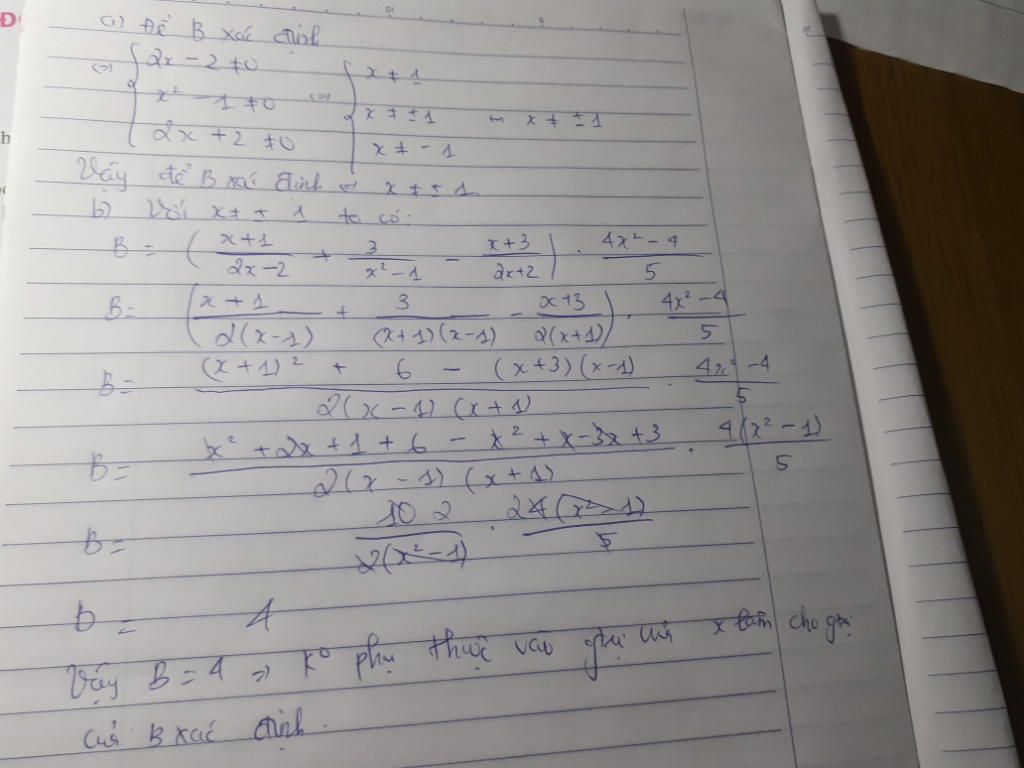 a) Để B xác định
<=> { 2x - 2 ≠ 0
x² - 1 ≠ 0
2x + 2 ≠ 0 <=> { x ≠ 1
x ≠ ±1
x ≠ -1 <=> x ≠ ±1
Vậy để B xác định <=> x ≠ ± 1
b) Với x ≠ ± 1 ta có:
B = ( (x+1)/(2x-2) + 3/(x²-1) - (x+3)/(2x+2) ) . (4x²-4)/5
B = ( (x+1)/(2(x-1)) + 3/((x+1)(x-1)) - (x+3)/(2(x+1)) ) . (4x²-4)/5
B = ((x+1)² + 6 - (x+3)(x-1))/(2(x-1)(x+1)) . (4x²-4)/5
B = (x² + 2x + 1 + 6 - x² + x - 3x + 3)/(2(x-1)(x+1)) . 4(x²-1)/5
B = 10 2/(2(x²-1)) . 2 4(x²-1)/5
B = 4
Vậy B = 4 => k° phụ thuộc vào gtrị của x làm cho gtrị
của B xác định.